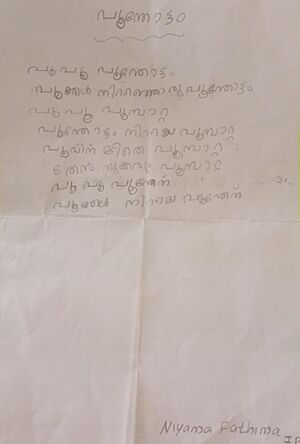 പൂന്തോട്ടം
പൂ പൂ പൂന്തോട്ടം
പൂക്കൾ നിറഞ്ഞൊരു പൂന്തോട്ടം
പൂ പൂ പൂമ്പാറ്റ
പൂന്തോട്ടം നിറയെ പൂമ്പാറ്റ
പൂവിന് മീതെ പൂമ്പാറ്റ
തേൻ നുകരും പൂമ്പാറ്റ
പൂ പൂ പൂന്തേൻ
പൂക്കൾ നിറയെ പൂന്തേൻ
Niyama Fathima